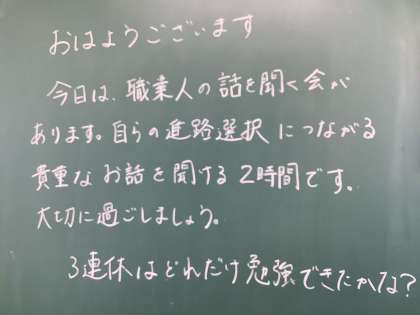 おはようございます
今日は、職業人の話を聞く会が
あります。自らの進路選択につながる
貴重なお話を聞ける2時間です。
大切に過ごしましょう。
3連休はどれだけ勉強できたかな?